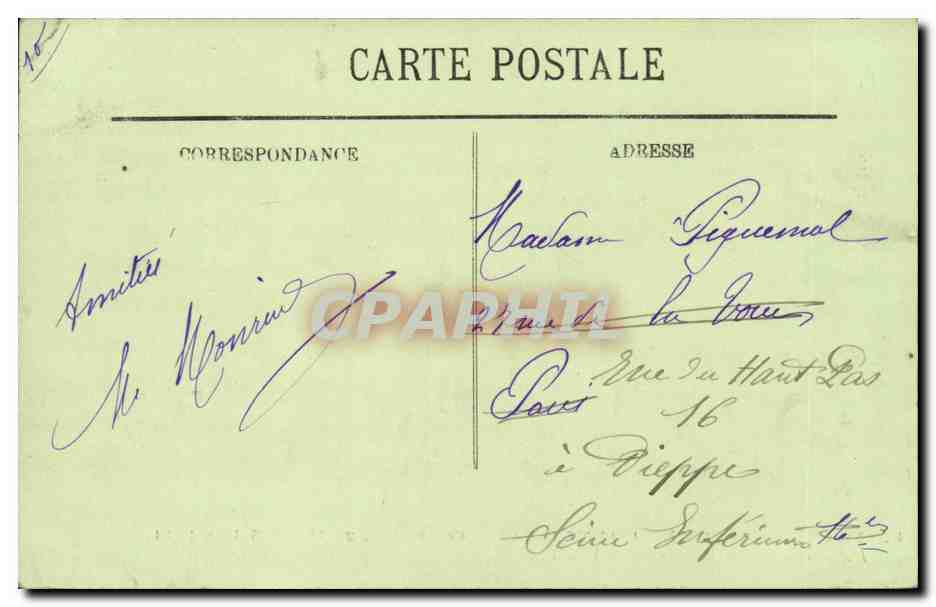 10
CARTE POSTALE
CORRESPONDANCE
ADRESSE
Amitiés
M.
Madame Piquemal
27 rue de la
Paris
Rue du Haut Pas
16
à Dieppe
Seine Inférieure
CPAPHIL